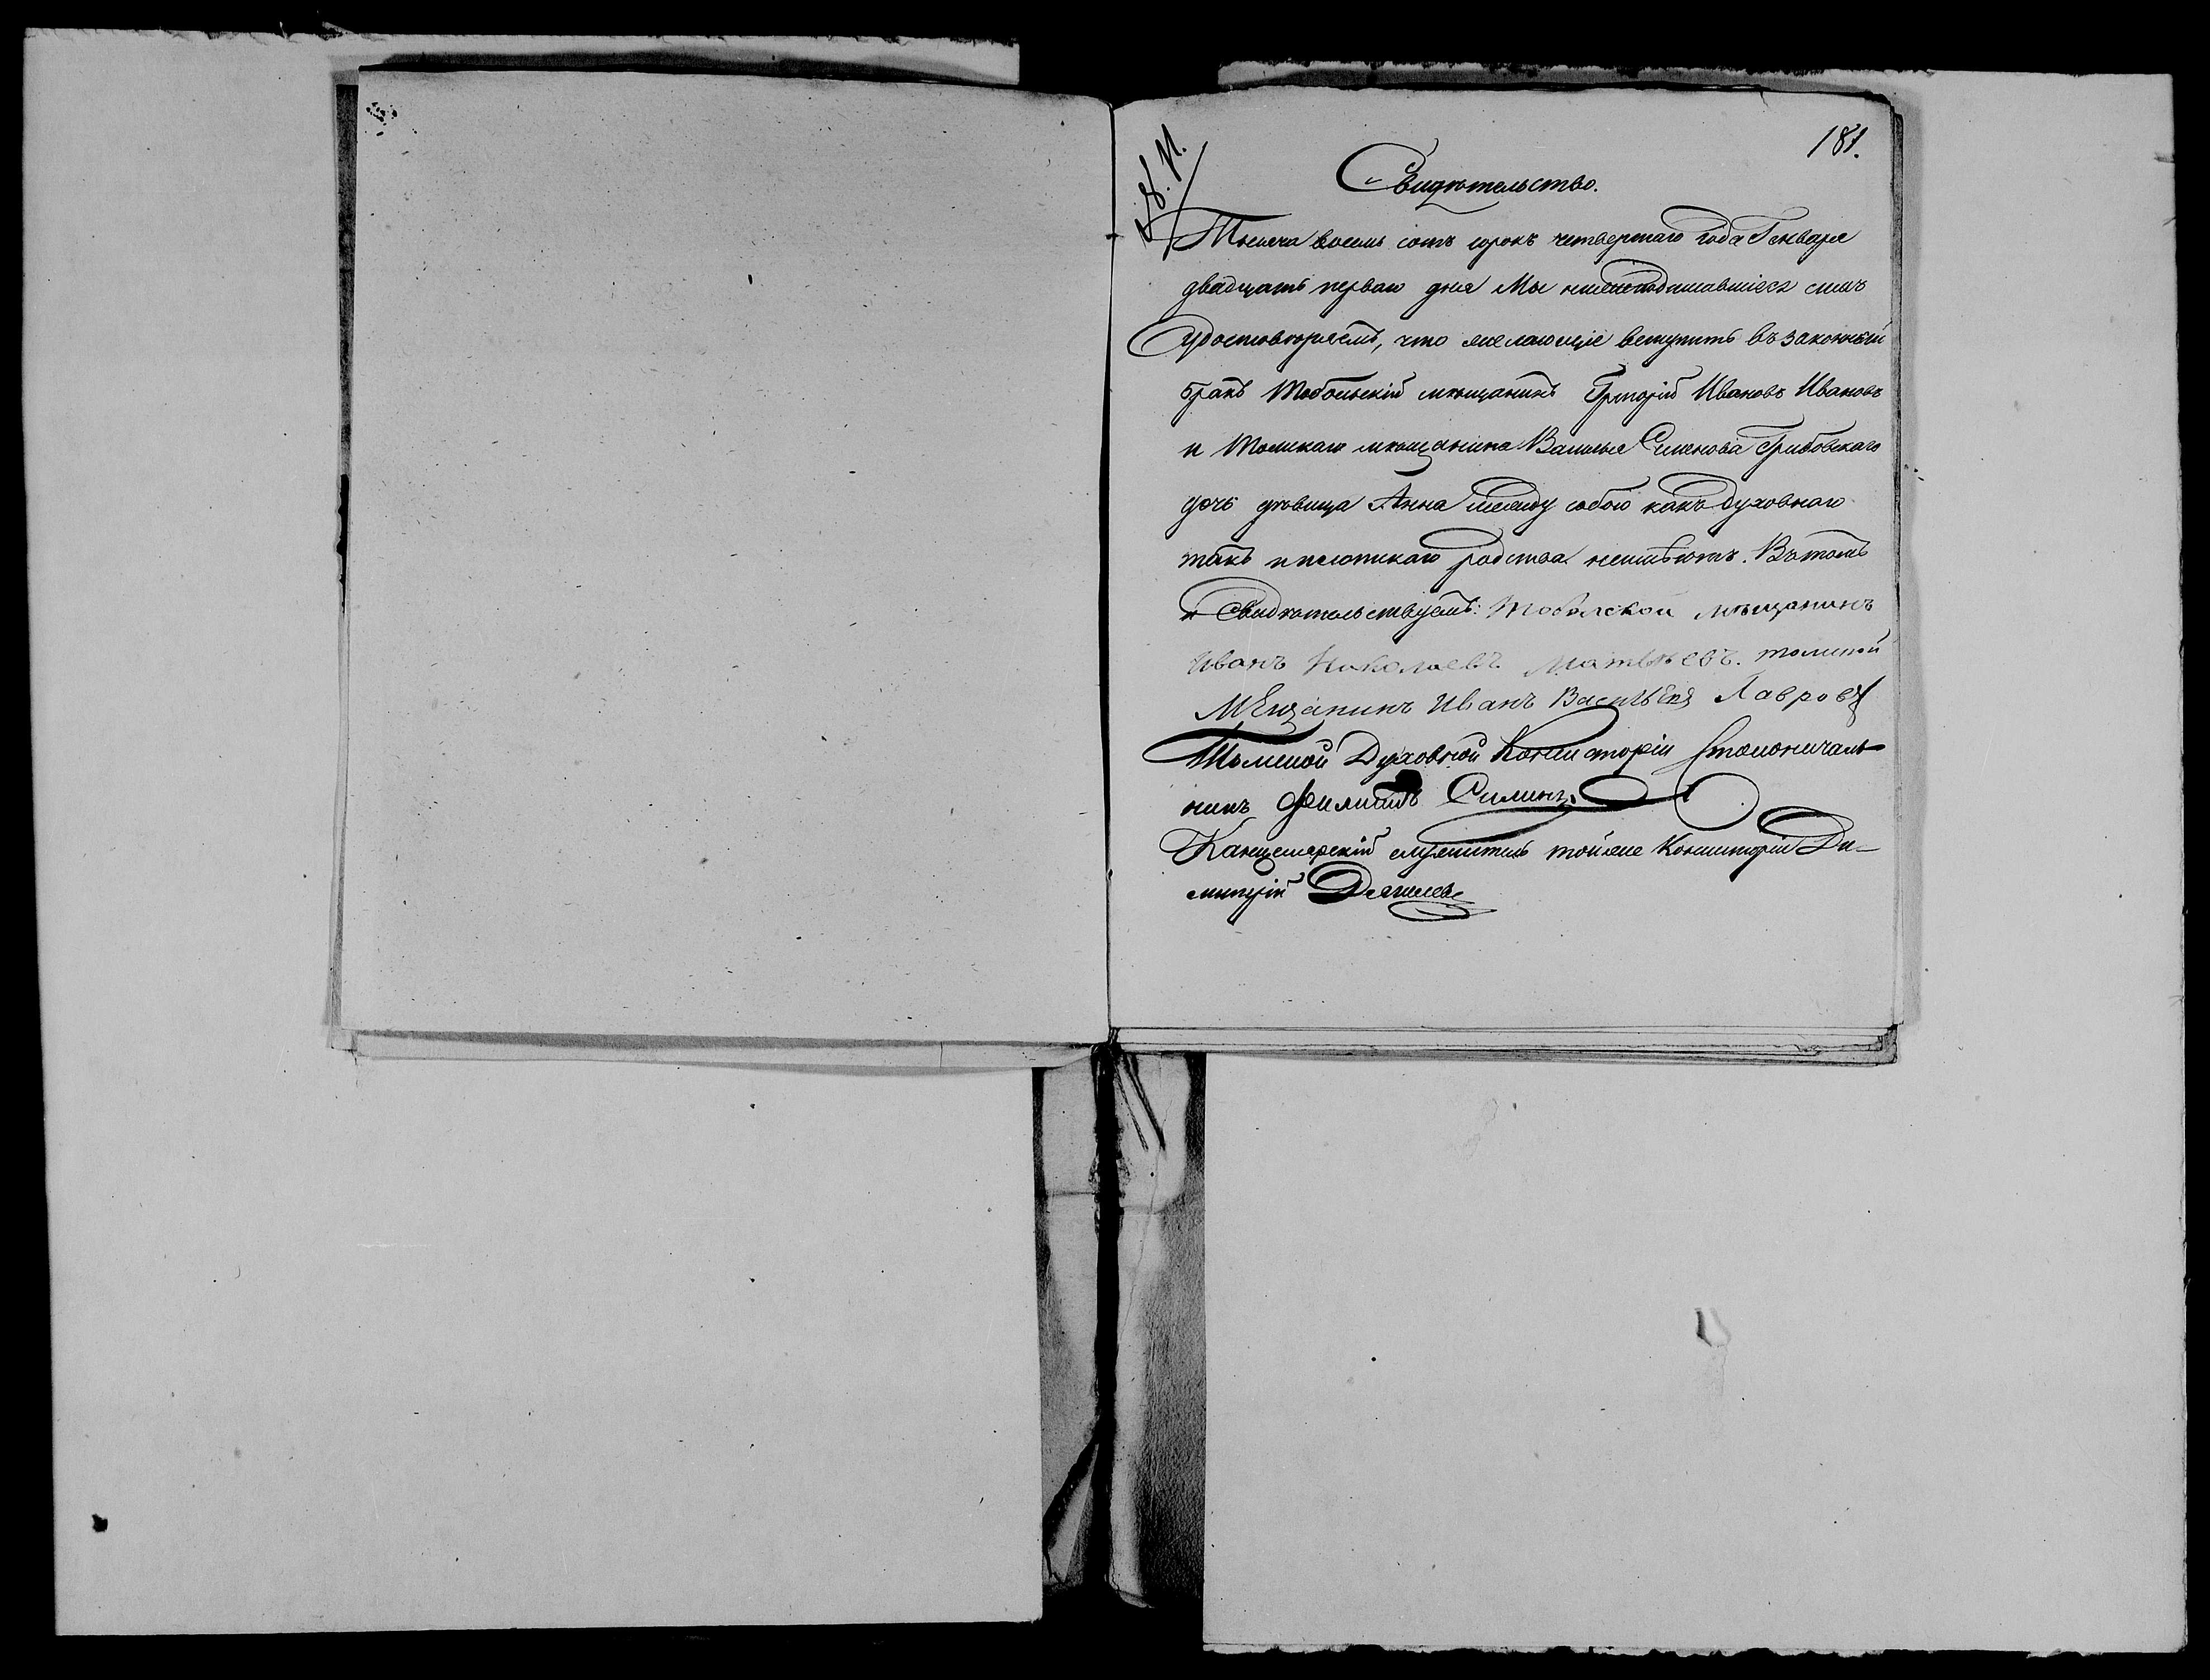 181.
Свидѣтельство.
Тысяча восемь сотъ сорокъ четвертаго года Генваря
двадцать перваго дня мы нижеподписавшіеся симъ
удостовѣряемъ, что желающіе вступить въ законный
бракъ Тобольскій мѣщанинъ Григорій Ивановъ Ивановъ
и Томскаго мѣщанина Василья Семенова Грибовскаго
дочь дѣвица Анна между собою какъ духовнаго
такъ и плотскаго родства неимѣютъ. Въ томъ
и свидѣтельствуемъ: Тобольской мѣщанинъ
Иванъ Николаевъ Матвѣевъ. томской
мещанинъ Иванъ Васильевъ Лавровъ
Томской Духовной Консисторіи Столоначаль-
никъ Филиппъ Силинъ.
Канцелярскій служитель той же Консисторіи Ди-
митрій